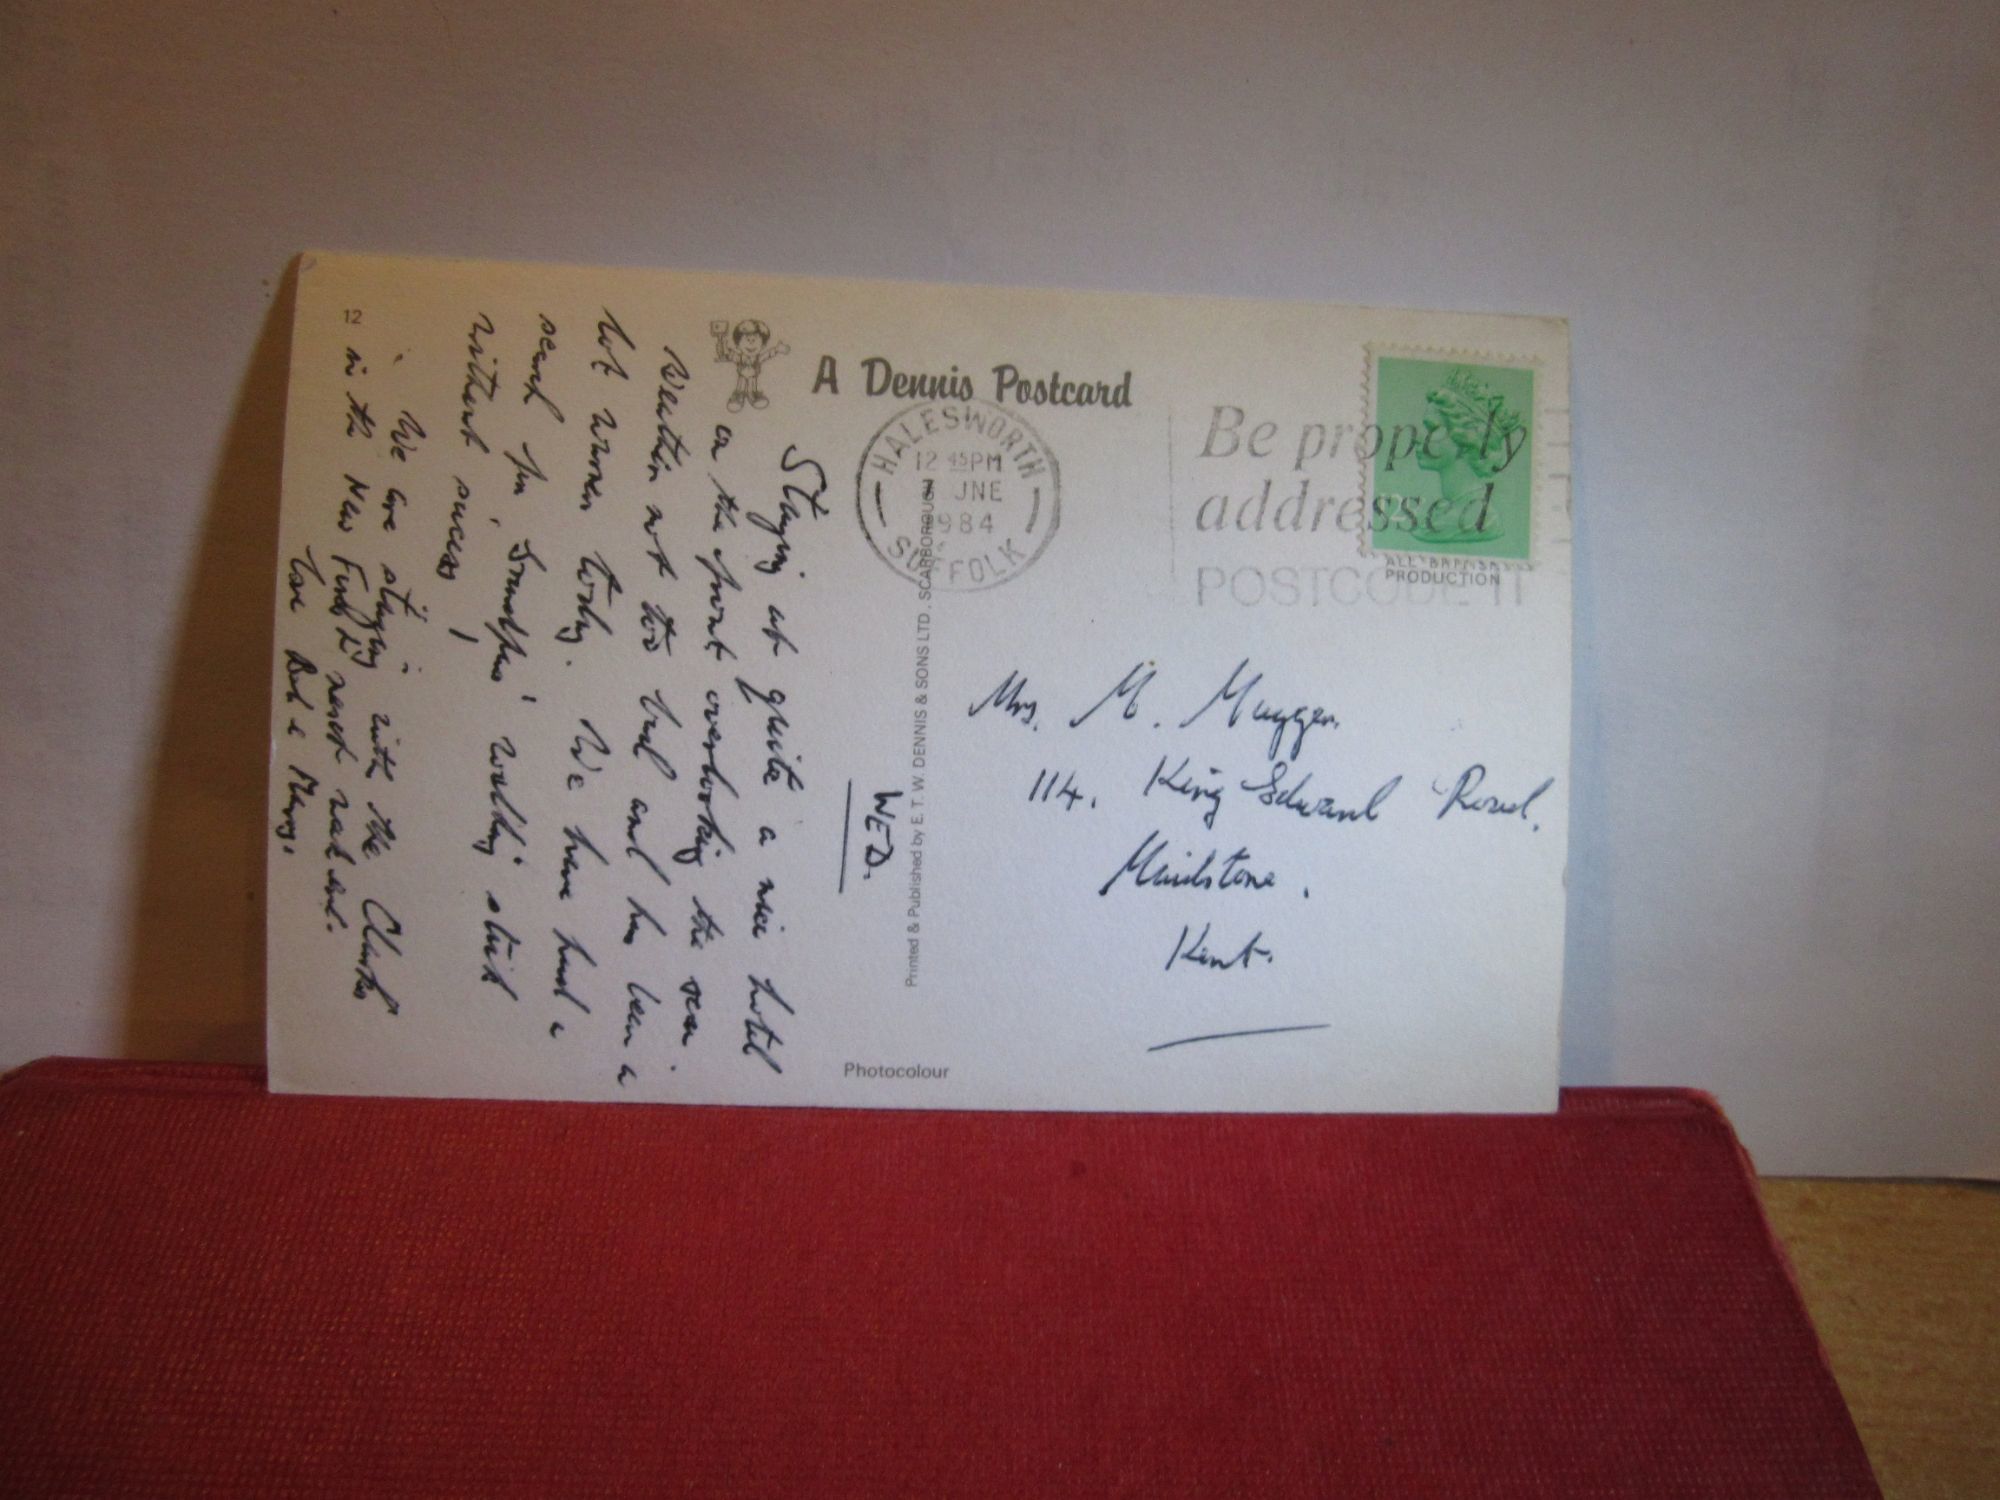 12
A Dennis Postcard
HALESWORTH
12 45PM
JNE
1984
SUFFOLK
Be properly
addressed
POSTCODE IT
ALL BRITISH
PRODUCTION
Printed & Published by E. T. W. DENNIS & SONS LTD., SCARBOROUGH
Photocolour
WED.
Staying at quite a nice hotel
on the front overlooking the sea.
Weather not too bad and has been a
lot warmer today. We have had a
search for Grandpa's walking stick
without success!
We are staying with the
in the New Forest next weekend.
Love Bob & Mary.
Mrs. M. Mugger.
114. King Edward Road.
Maidstone.
Kent.